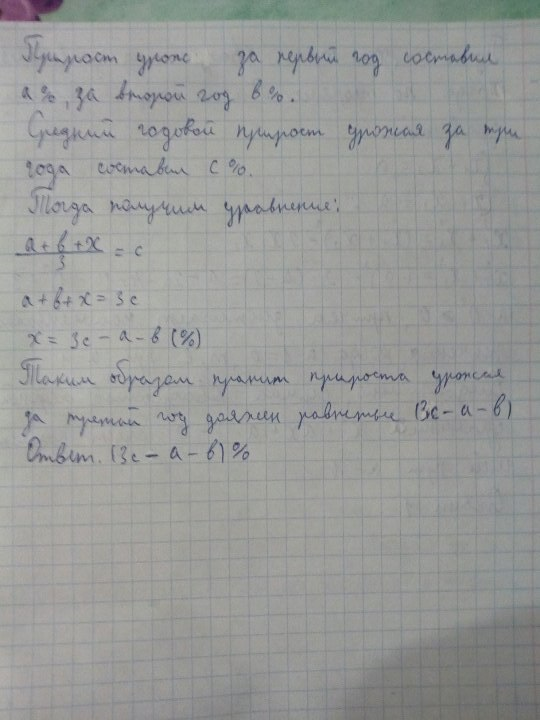 Прирост урож за первый год составил
a%, за второй год b%.
Средний годовой прирост урожая за три
года составил c%.
Тогда получим уравнение:
a+b+x/3 = c
a+b+x = 3c
x = 3c - a - b (%)
Таким образом прирост урожая
за третий год должен равняться (3c - a - b)
Ответ. (3c - a - b)%